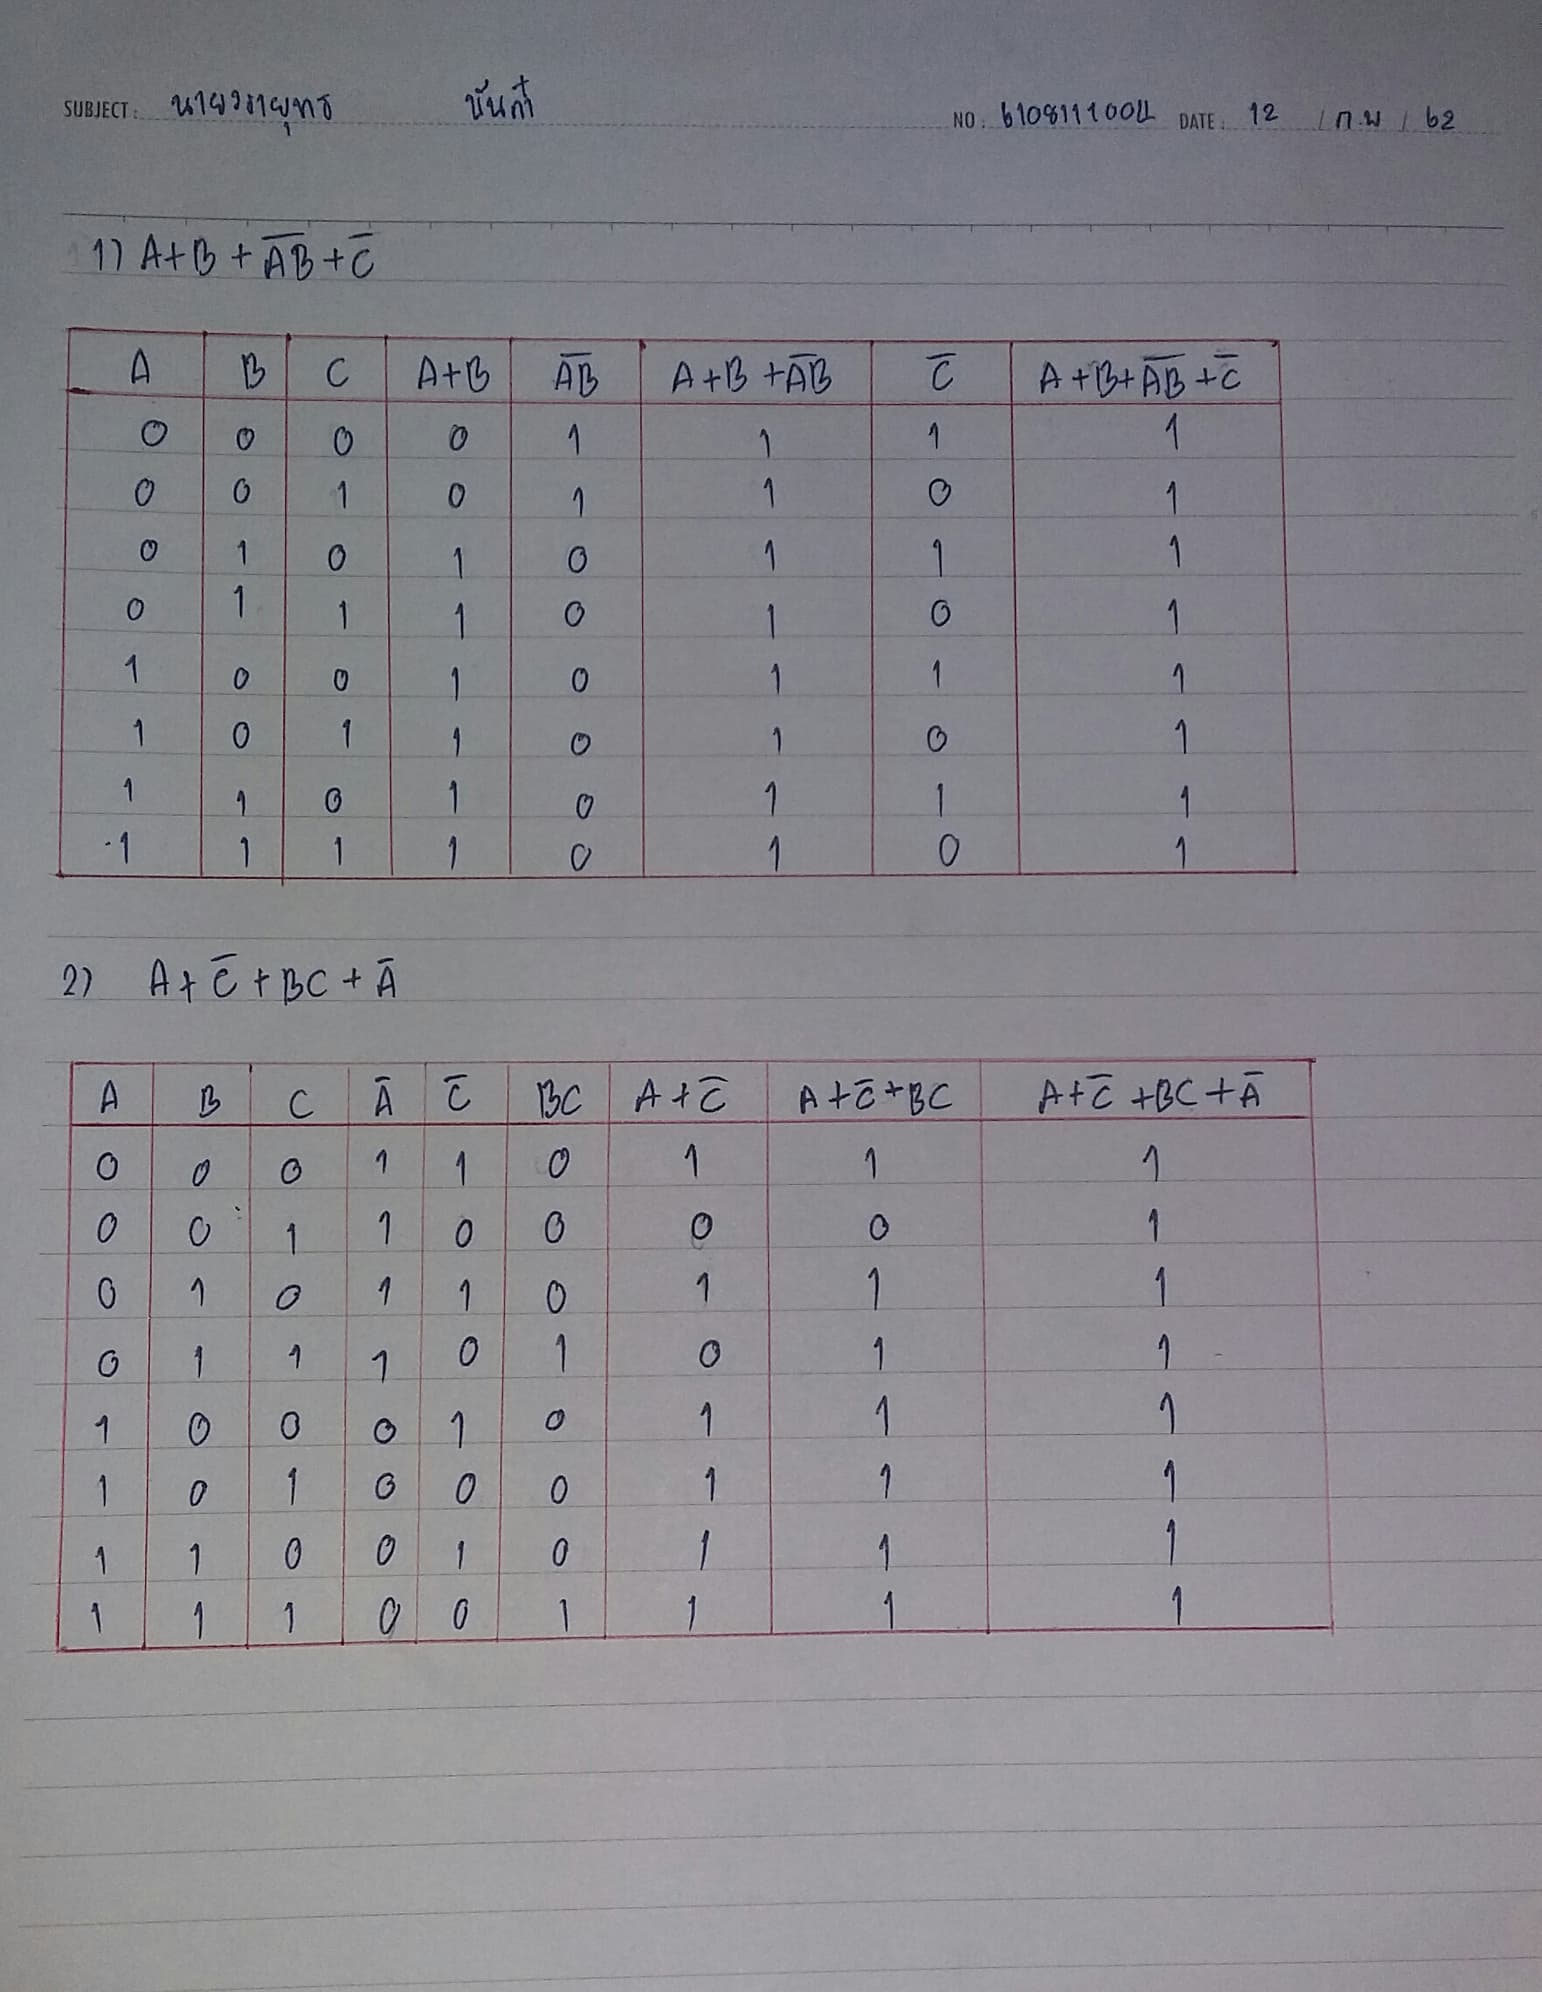 SUBJECT: นายวรายุทธ ขันกำ NO: 6108111004 DATE: 12 / ก.พ / 62
1) A+B+A̅B̅+C̅
A B C A+B A̅B̅ A+B+A̅B̅ C̅ A+B+A̅B̅+C̅
0 0 0 0 1 1 1 1
0 0 1 0 1 1 0 1
0 1 0 1 0 1 1 1
0 1 1 1 0 1 0 1
1 0 0 1 0 1 1 1
1 0 1 1 0 1 0 1
1 1 0 1 0 1 1 1
1 1 1 1 0 1 0 1
2) A+C̅+BC+A̅
A B C A̅ C̅ BC A+C̅ A+C̅+BC A+C̅+BC+A̅
0 0 0 1 1 0 1 1 1
0 0 1 1 0 0 0 0 1
0 1 0 1 1 0 1 1 1
0 1 1 1 0 1 0 1 1
1 0 0 0 1 0 1 1 1
1 0 1 0 0 0 1 1 1
1 1 0 0 1 0 1 1 1
1 1 1 0 0 1 1 1 1